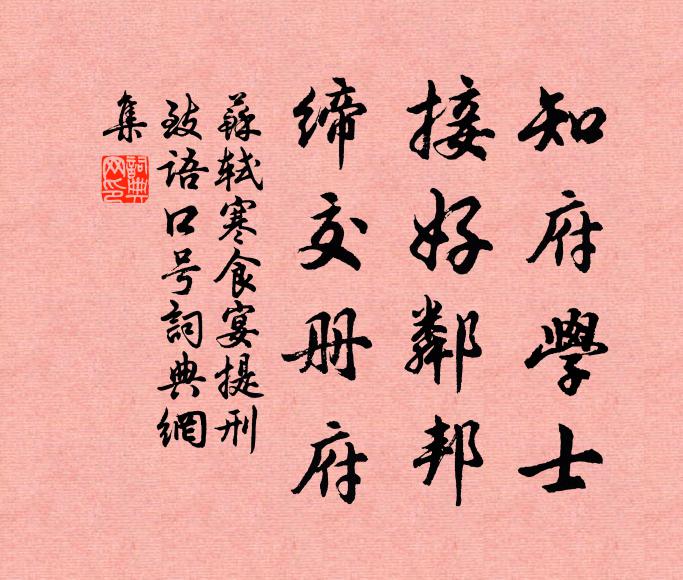 知府學士
接好鄰邦
締交册府
蘇軾寒食宴提刑
致语口号詞典網
集
詞典网印